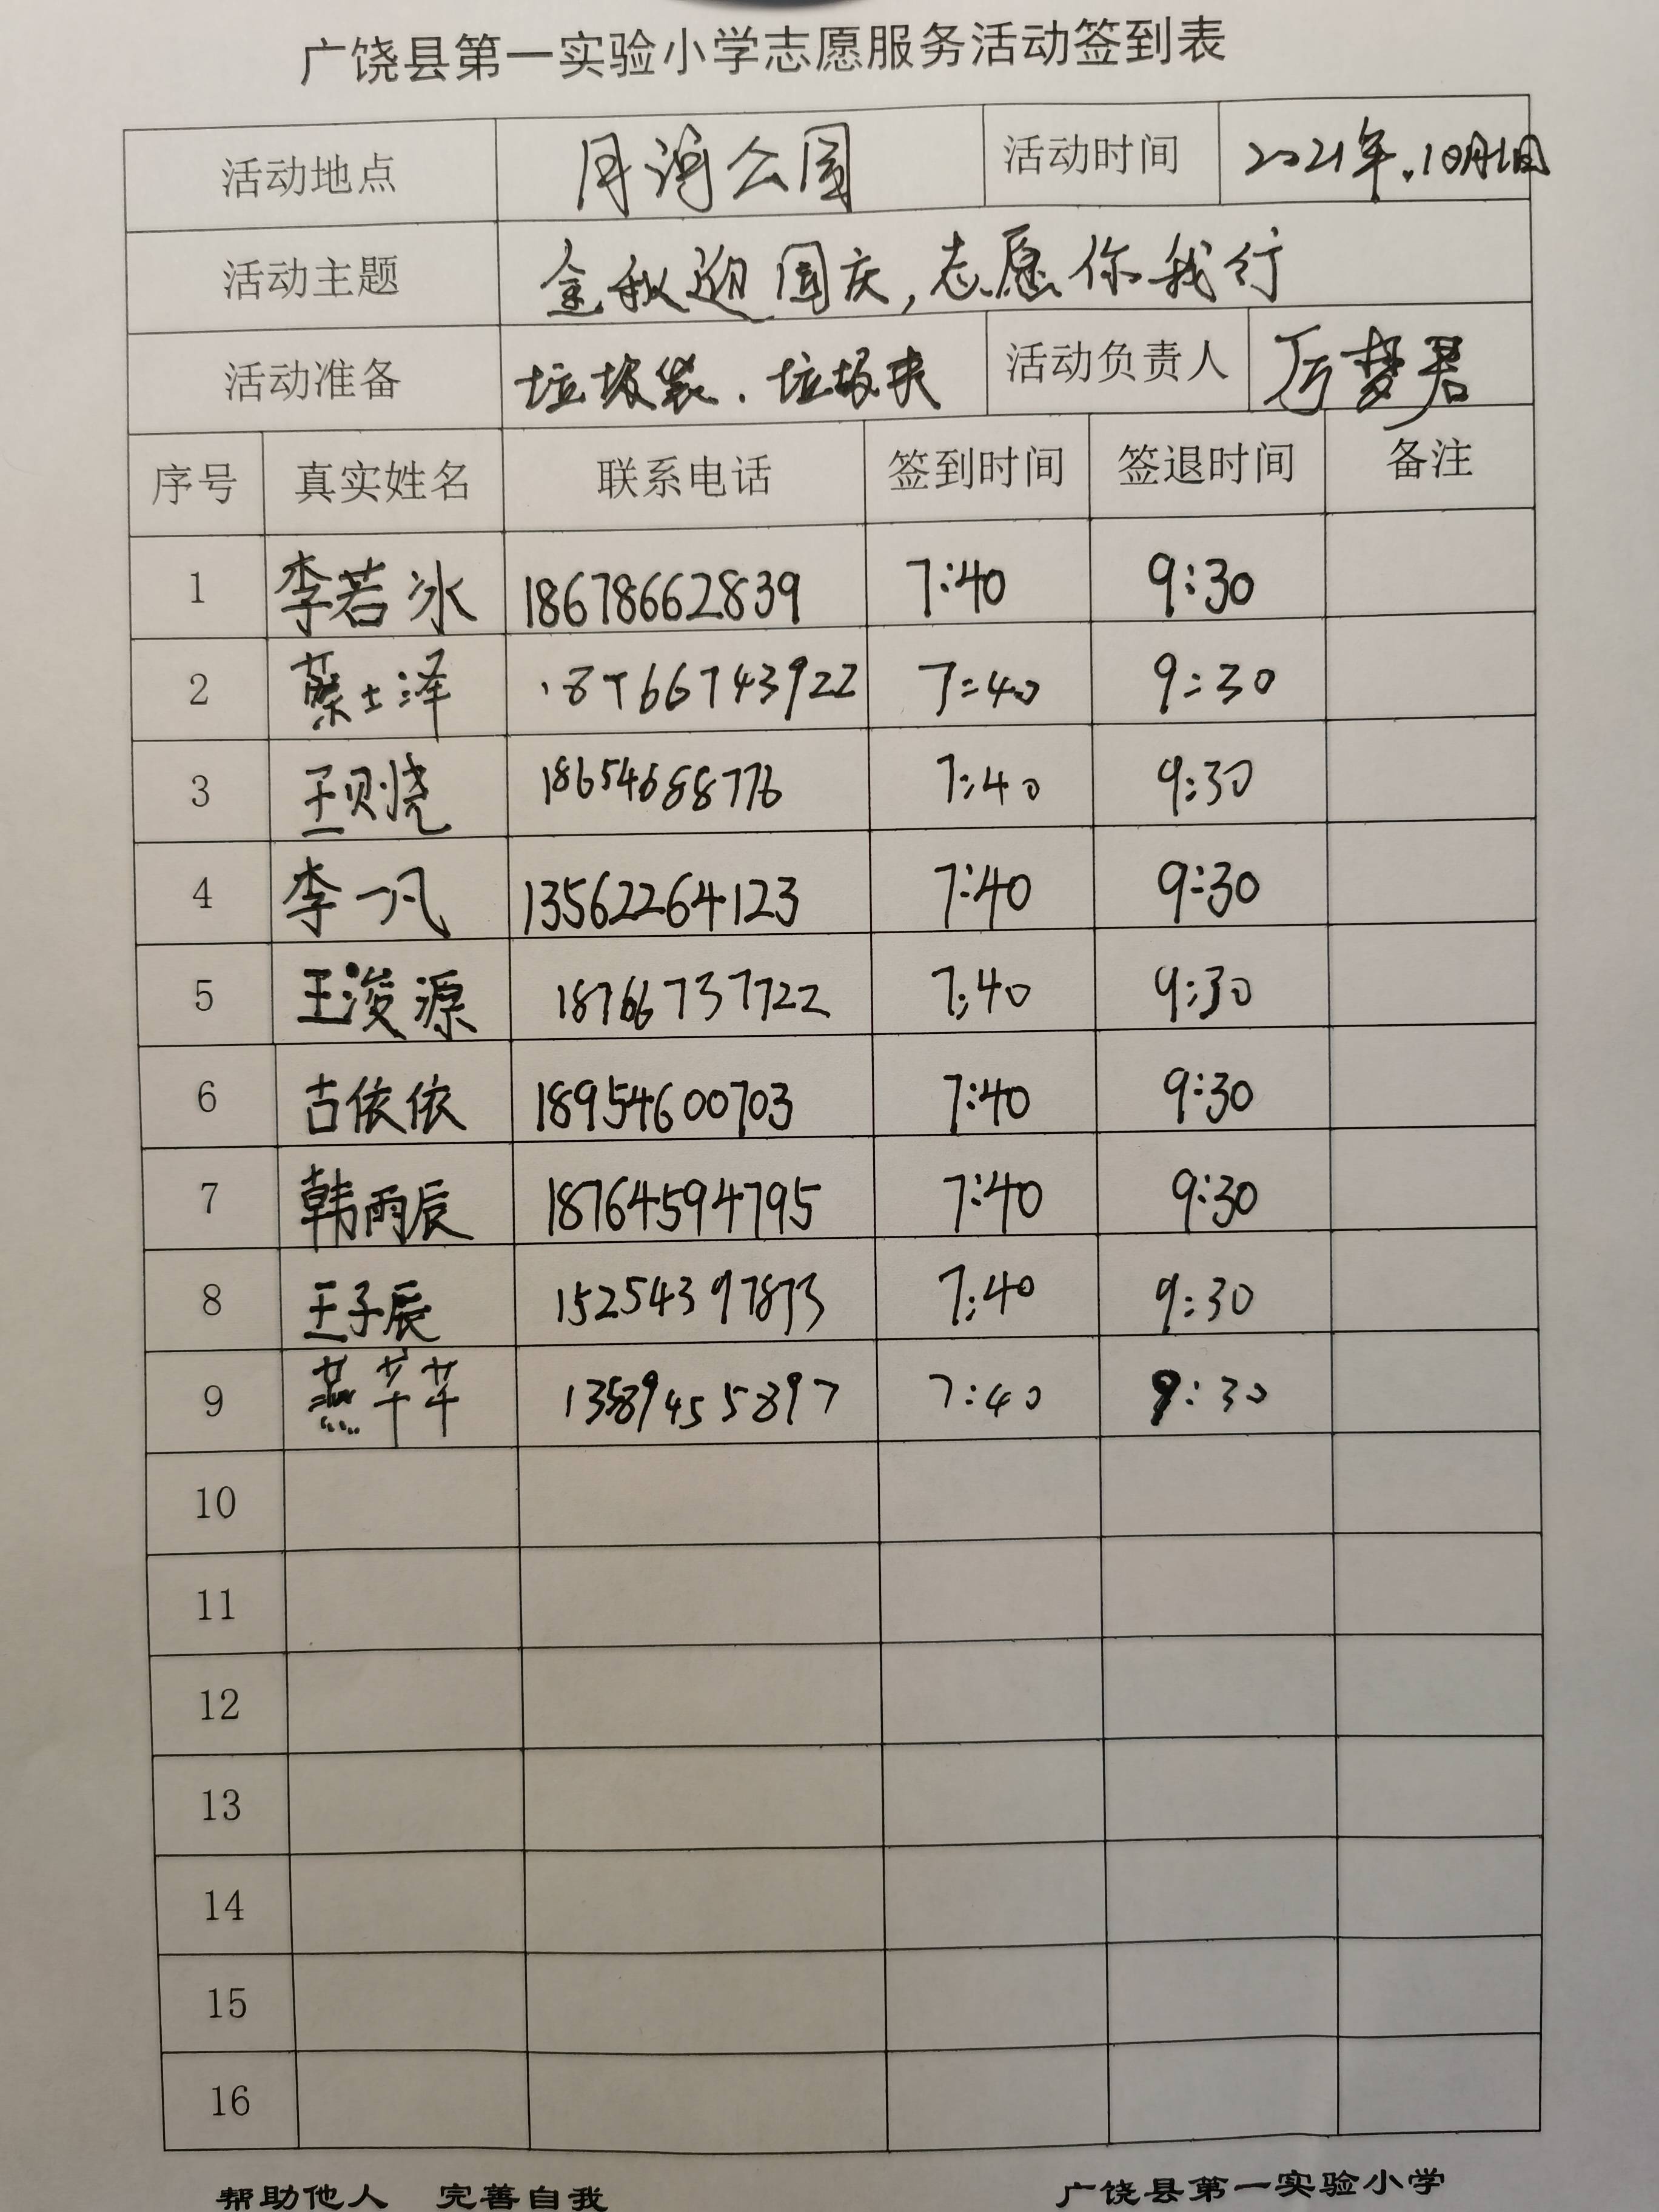 广饶县第一实验小学志愿服务活动签到表
活动地点 月河公园 活动时间 2021年.10月1日
活动主题 金秋迎国庆,志愿你我行
活动准备 垃圾袋.垃圾夹 活动负责人 梦君
序号 真实姓名 联系电话 签到时间 签退时间 备注
1 李若冰 18678662839 7:40 9:30
2 蔡士泽 18766743922 7:40 9:30
3 王贝晓 18654688776 7:40 9:30
4 李一凡 13562264123 7:40 9:30
5 王浚源 18766737722 7:40 9:30
6 古依依 18954600703 7:40 9:30
7 韩雨辰 18764594795 7:40 9:30
8 王子辰 15254397873 7:40 9:30
9 燕芊芊 13589455897 7:40 9:30
10
11
12
13
14
15
16
帮助他人 完善自我 广饶县第一实验小学